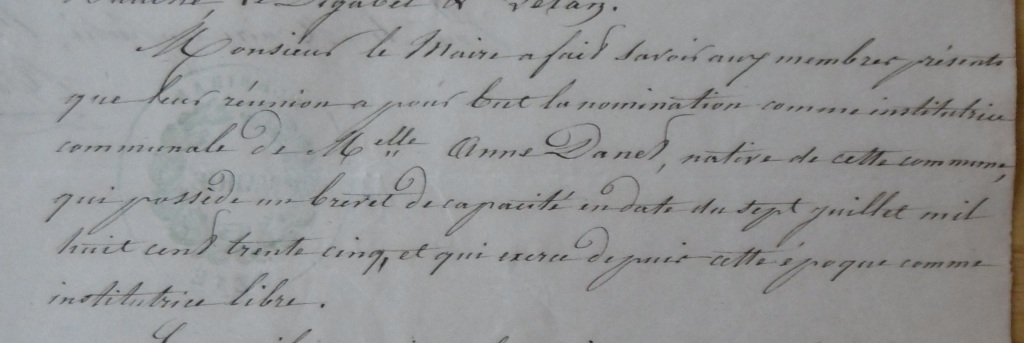 le Digabel &
Monsieur le Maire a fait savoir aux membres présents
que leur réunion a pour but la nomination comme institutrice
communale de Melle Anne Danet, native de cette commune,
qui possède un brevet de capacité en date du sept juillet mil
huit cent trente cinq, et qui exerce depuis cette époque comme
institutrice libre.